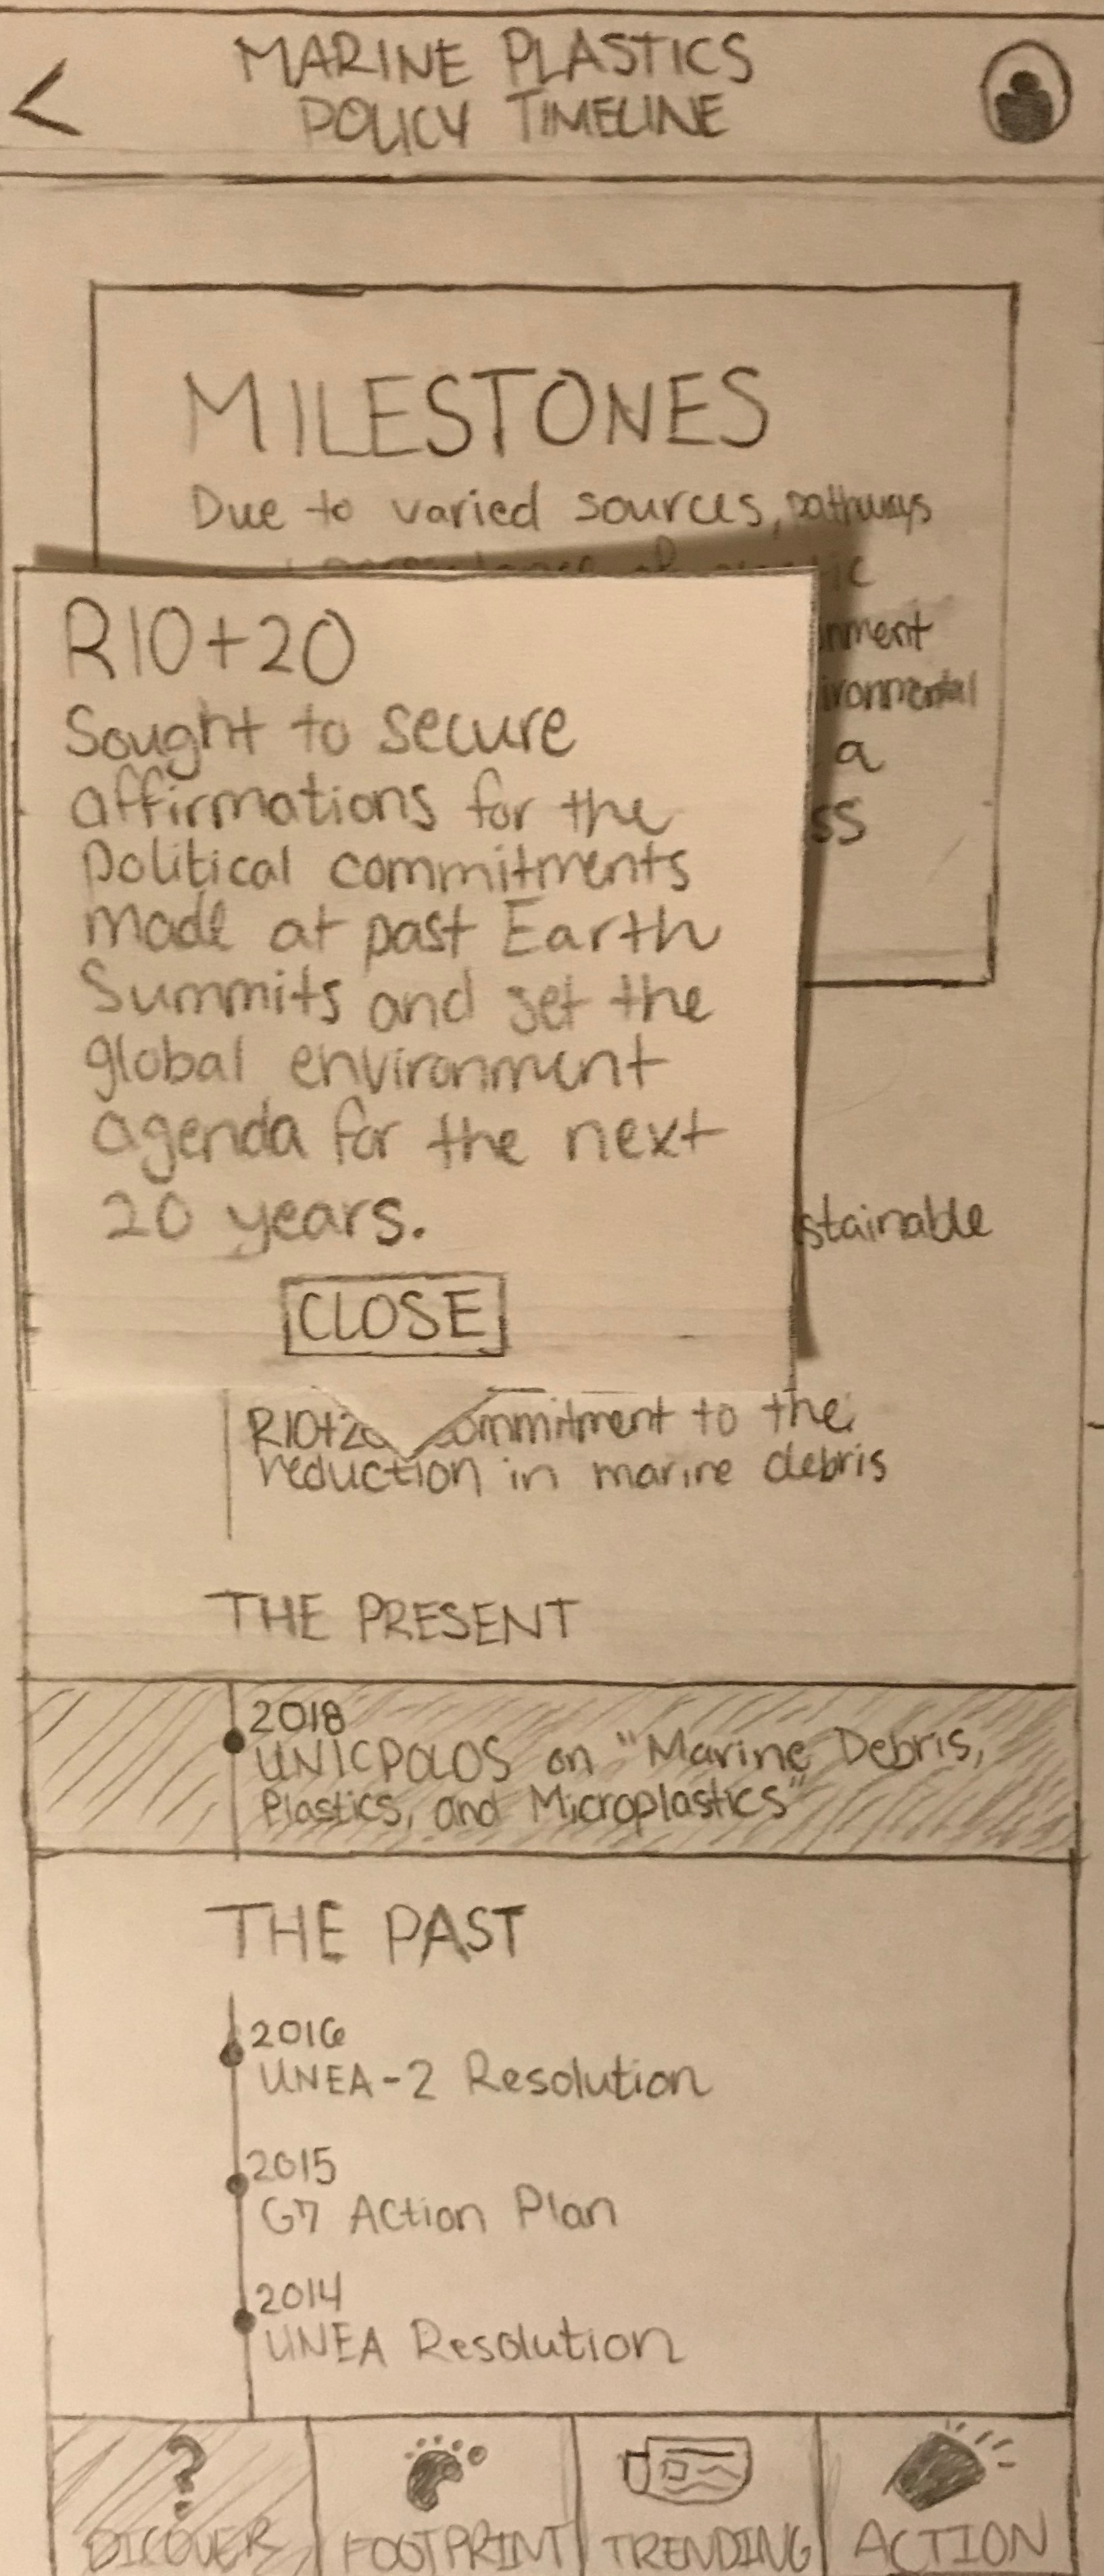 MARINE PLASTICS
POLICY TIMELINE
MILESTONES
Due to varied sources, pathways
RIO+20
Sought to secure
affirmations for the
political commitments
made at past Earth
Summits and set the
global environment
agenda for the next
20 years.
CLOSE
a
RIO+20 commitment to the
reduction in marine debris
THE PRESENT
2018
UNICPOLOS on "Marine Debris,
Plastics, and Microplastics"
THE PAST
2016
UNEA-2 Resolution
2015
G7 Action Plan
2014
UNEA Resolution
? 
DISCOVER
FOOTPRINT
TRENDING
ACTION